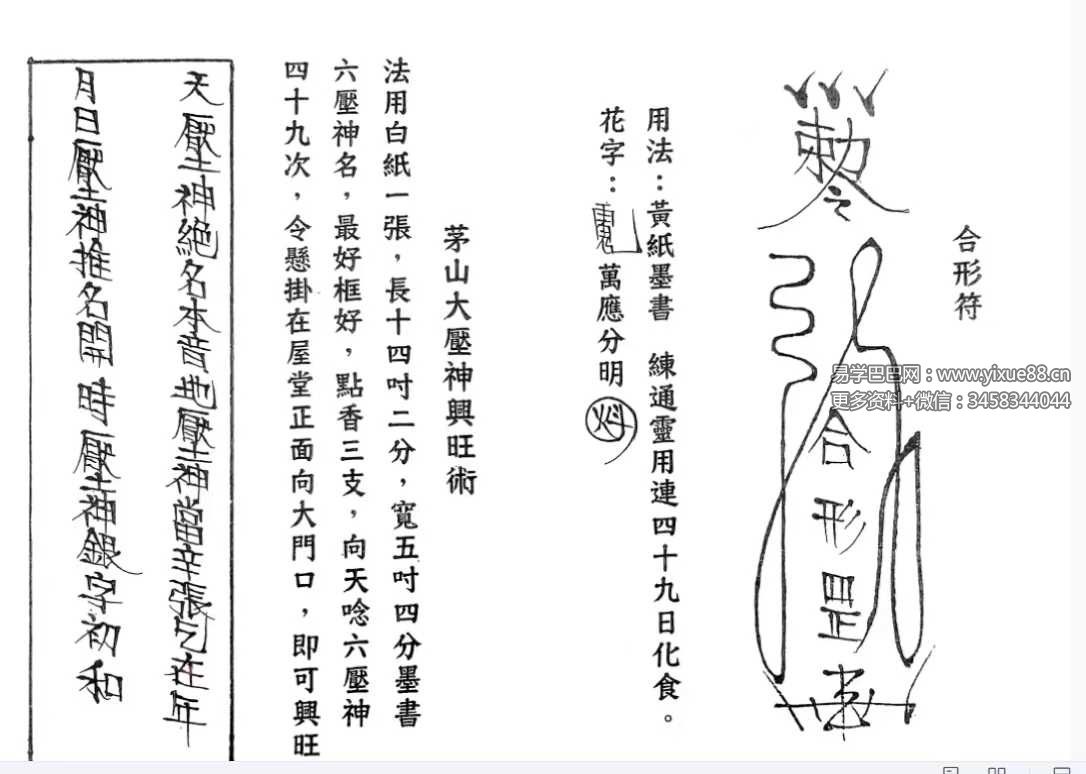 合形符
勅令
合形罡
用法：黃紙墨書　練通靈用連四十九日化食。
花字：萬應分明
茅山大壓神興旺術
法用白紙一張，長十四吋二分，寬五吋四分墨書
六壓神名，最好框好，點香三支，向天唸六壓神
四十九次，令懸掛在屋堂正面向大門口，即可興旺
天壓神絕名本音地壓神當辛張乞在年
月日壓神推名開時壓神銀字初和
易学巴巴网：www.yixue88.cn
更多资料+微信：3458344044